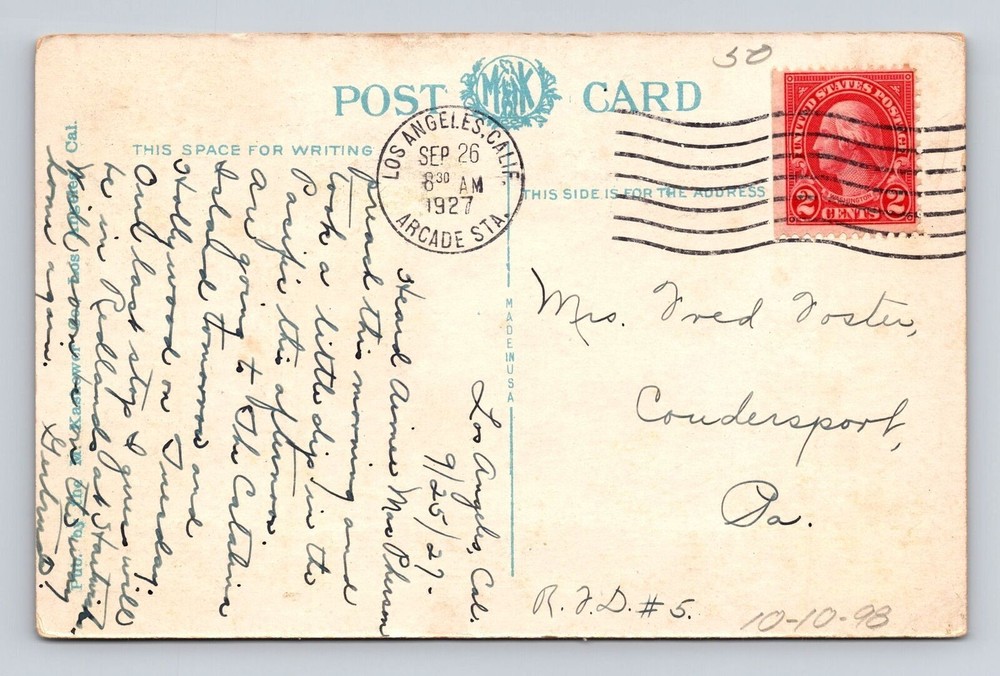 50
POST CARD
M K
THIS SPACE FOR WRITING
THIS SIDE IS FOR THE ADDRESS
LOS ANGELES, CALIF.
SEP 26
8 30 AM
1927
ARCADE STA.
UNITED STATES POSTAGE
2 CENTS 2
MADE IN USA
Los Angeles, Cal.
9/25/27-
Heard Aimee MacPherson
preach this morning and
took a little dip in the
Pacific this afternoon.
Are going to the Catalina
Island tomorrow and
Hollywood on Tuesday.
Our last stop I guess will
be in Redlands at
Will soon be
home again.
Pub. by the M. Kashower Co. Los Angeles, Cal.
Mrs. Fred Foster,
Coudersport,
Pa.
R.F.D. #5.
10-10-98